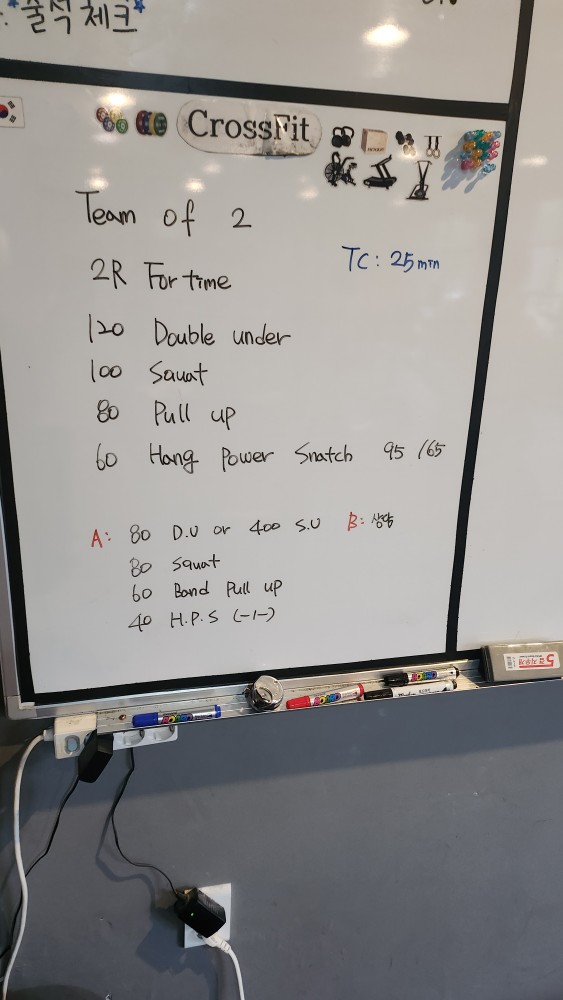 출석 체크
CrossFit
Team of 2
TC: 25min
2R For time
120 Double under
100 Squat
80 Pull up
60 Hang Power Snatch 95 /65
A: 80 D.U or 400 S.U B: 상담
80 Squat
60 Band Pull up
40 H.P.S (-1-)